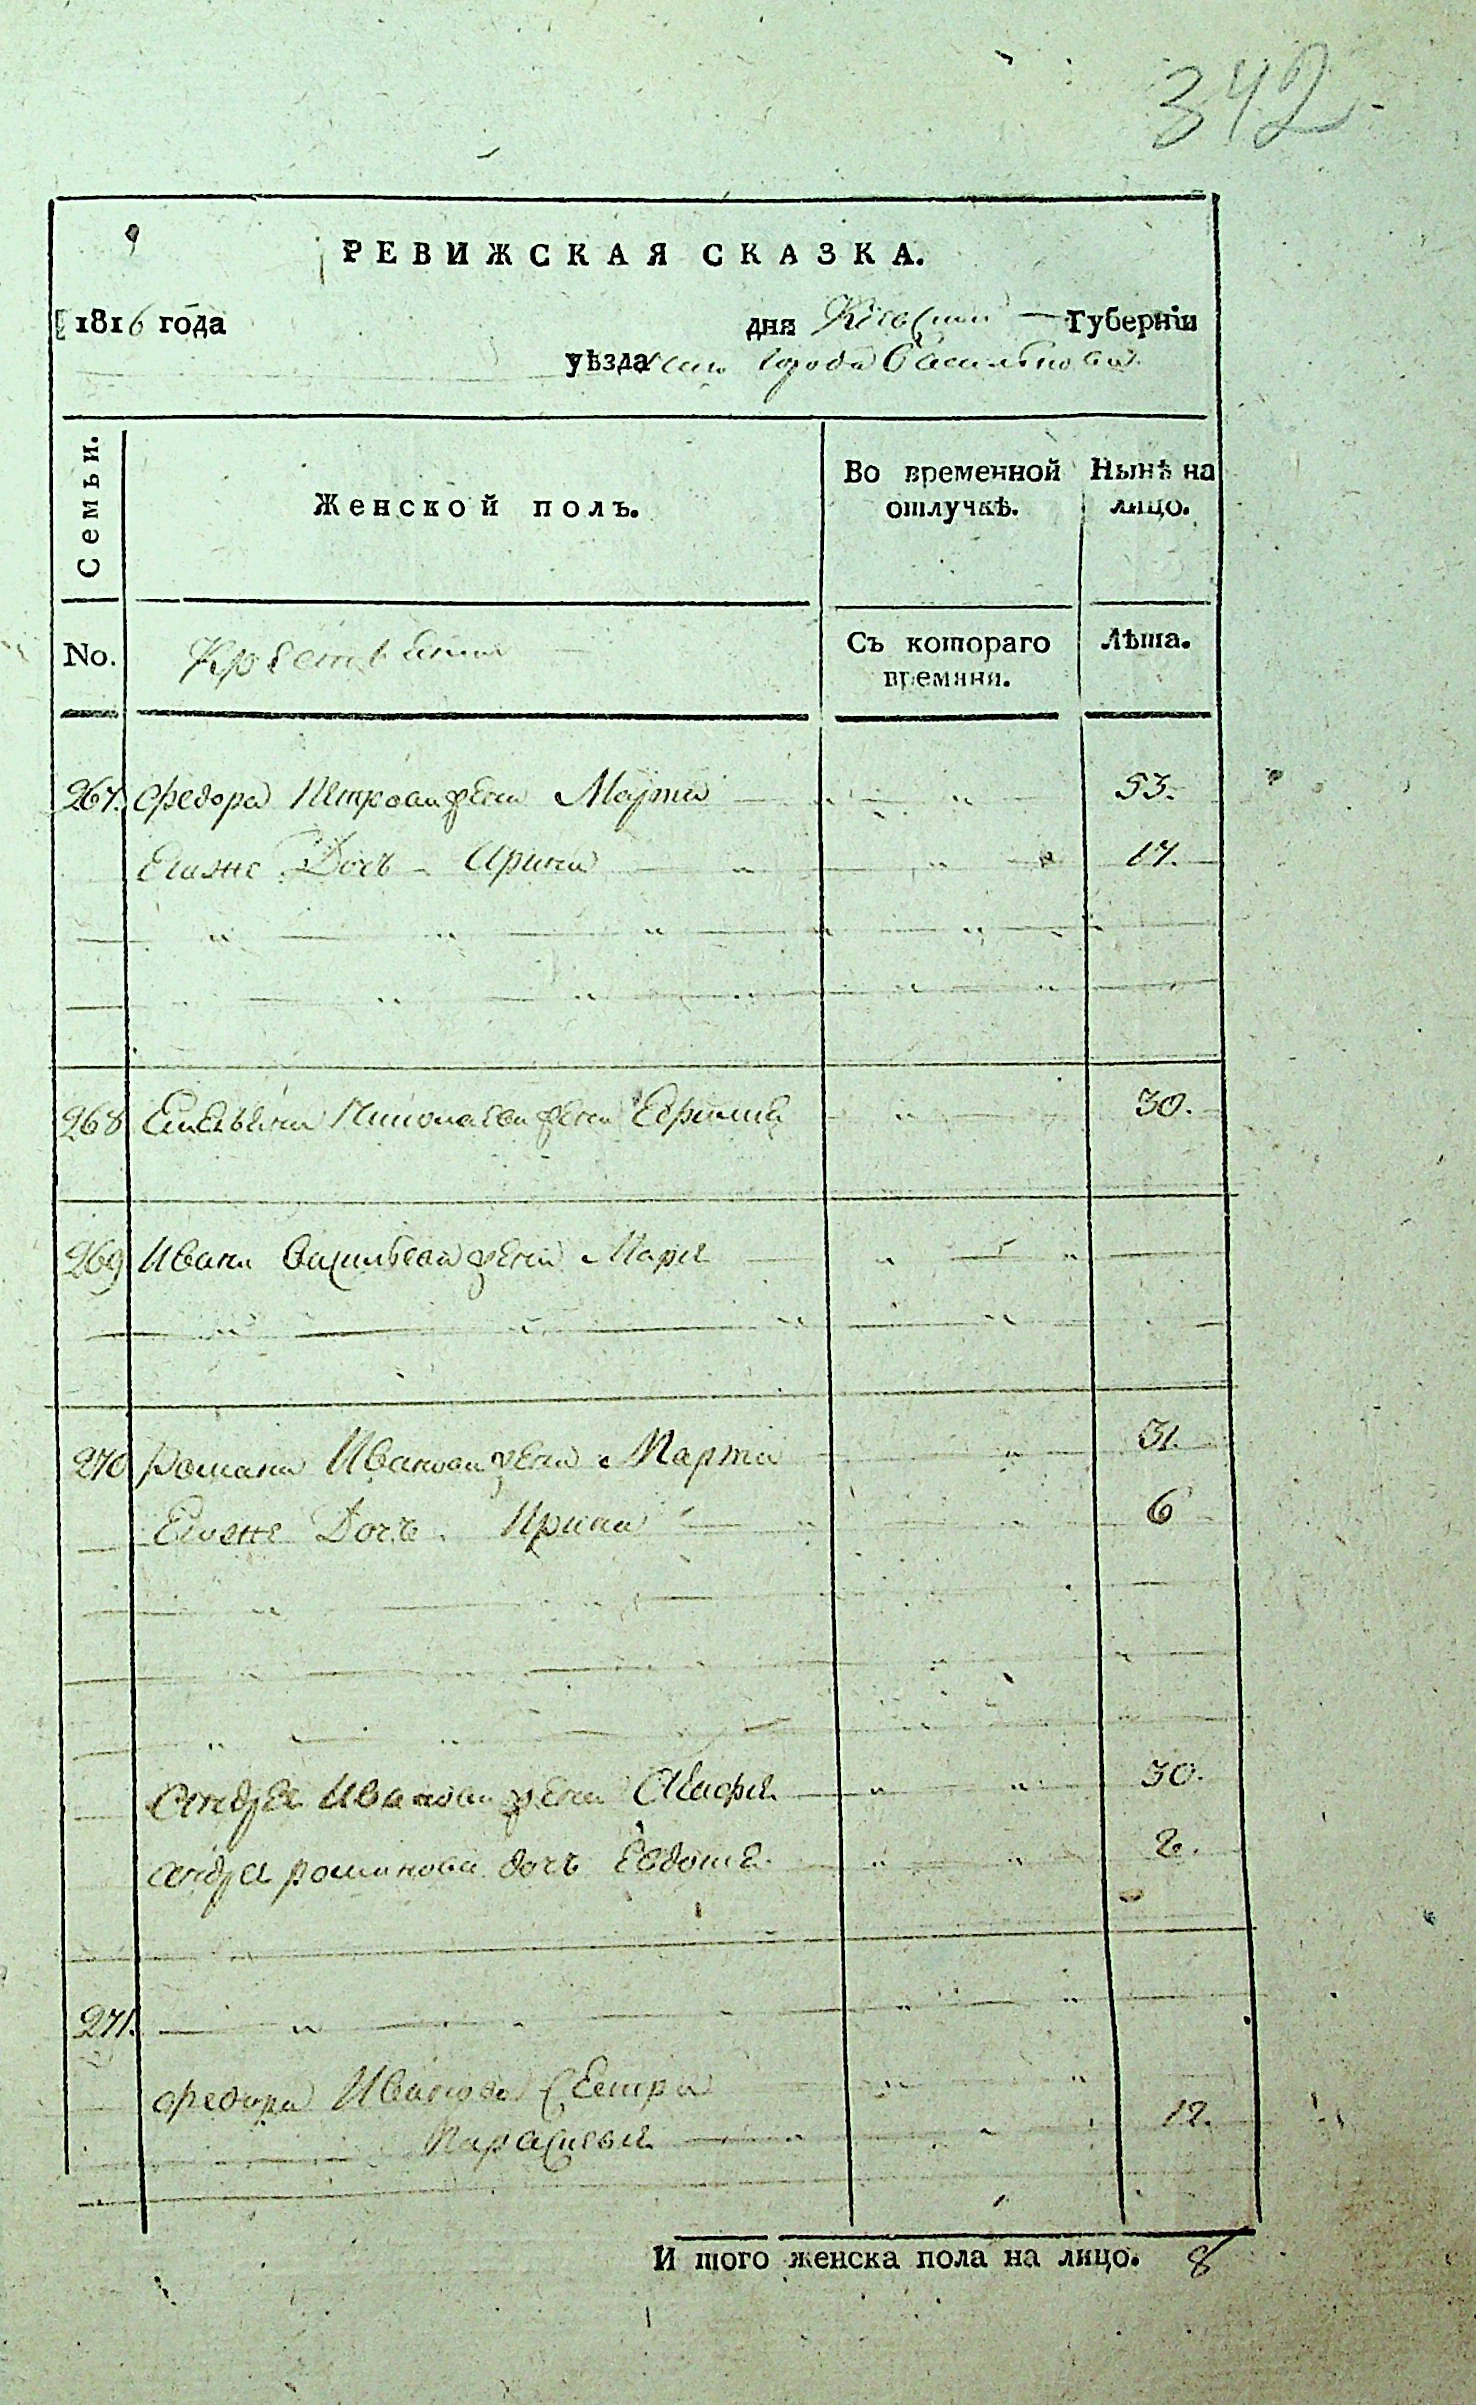 342.
РЕВИЖСКАЯ СКАЗКА.
1816 года дня Кіевской Губерніи
уѣзда города Василькова
Семьи.
Женской полъ.
Во временной отлучкѣ.
Нынѣ на лицо.
No.
Крестьяне
Съ котораго времяни.
Лѣта.
267. Федора Петрова жена Марта 53.
Егоже Дочь Ирина 17.
268 Емельяна жена 30.
269 Ивана Васильева жена Марья
270 Романа Иванова жена Марта 31.
Егоже Дочь Ирина 6
Андрея Иванова жена Агафья 30.
Андрея романова дочь Евдокия 2.
271.
Федора Иванова Сестра
Параскевья 12.
И того женска пола на лицо. 8